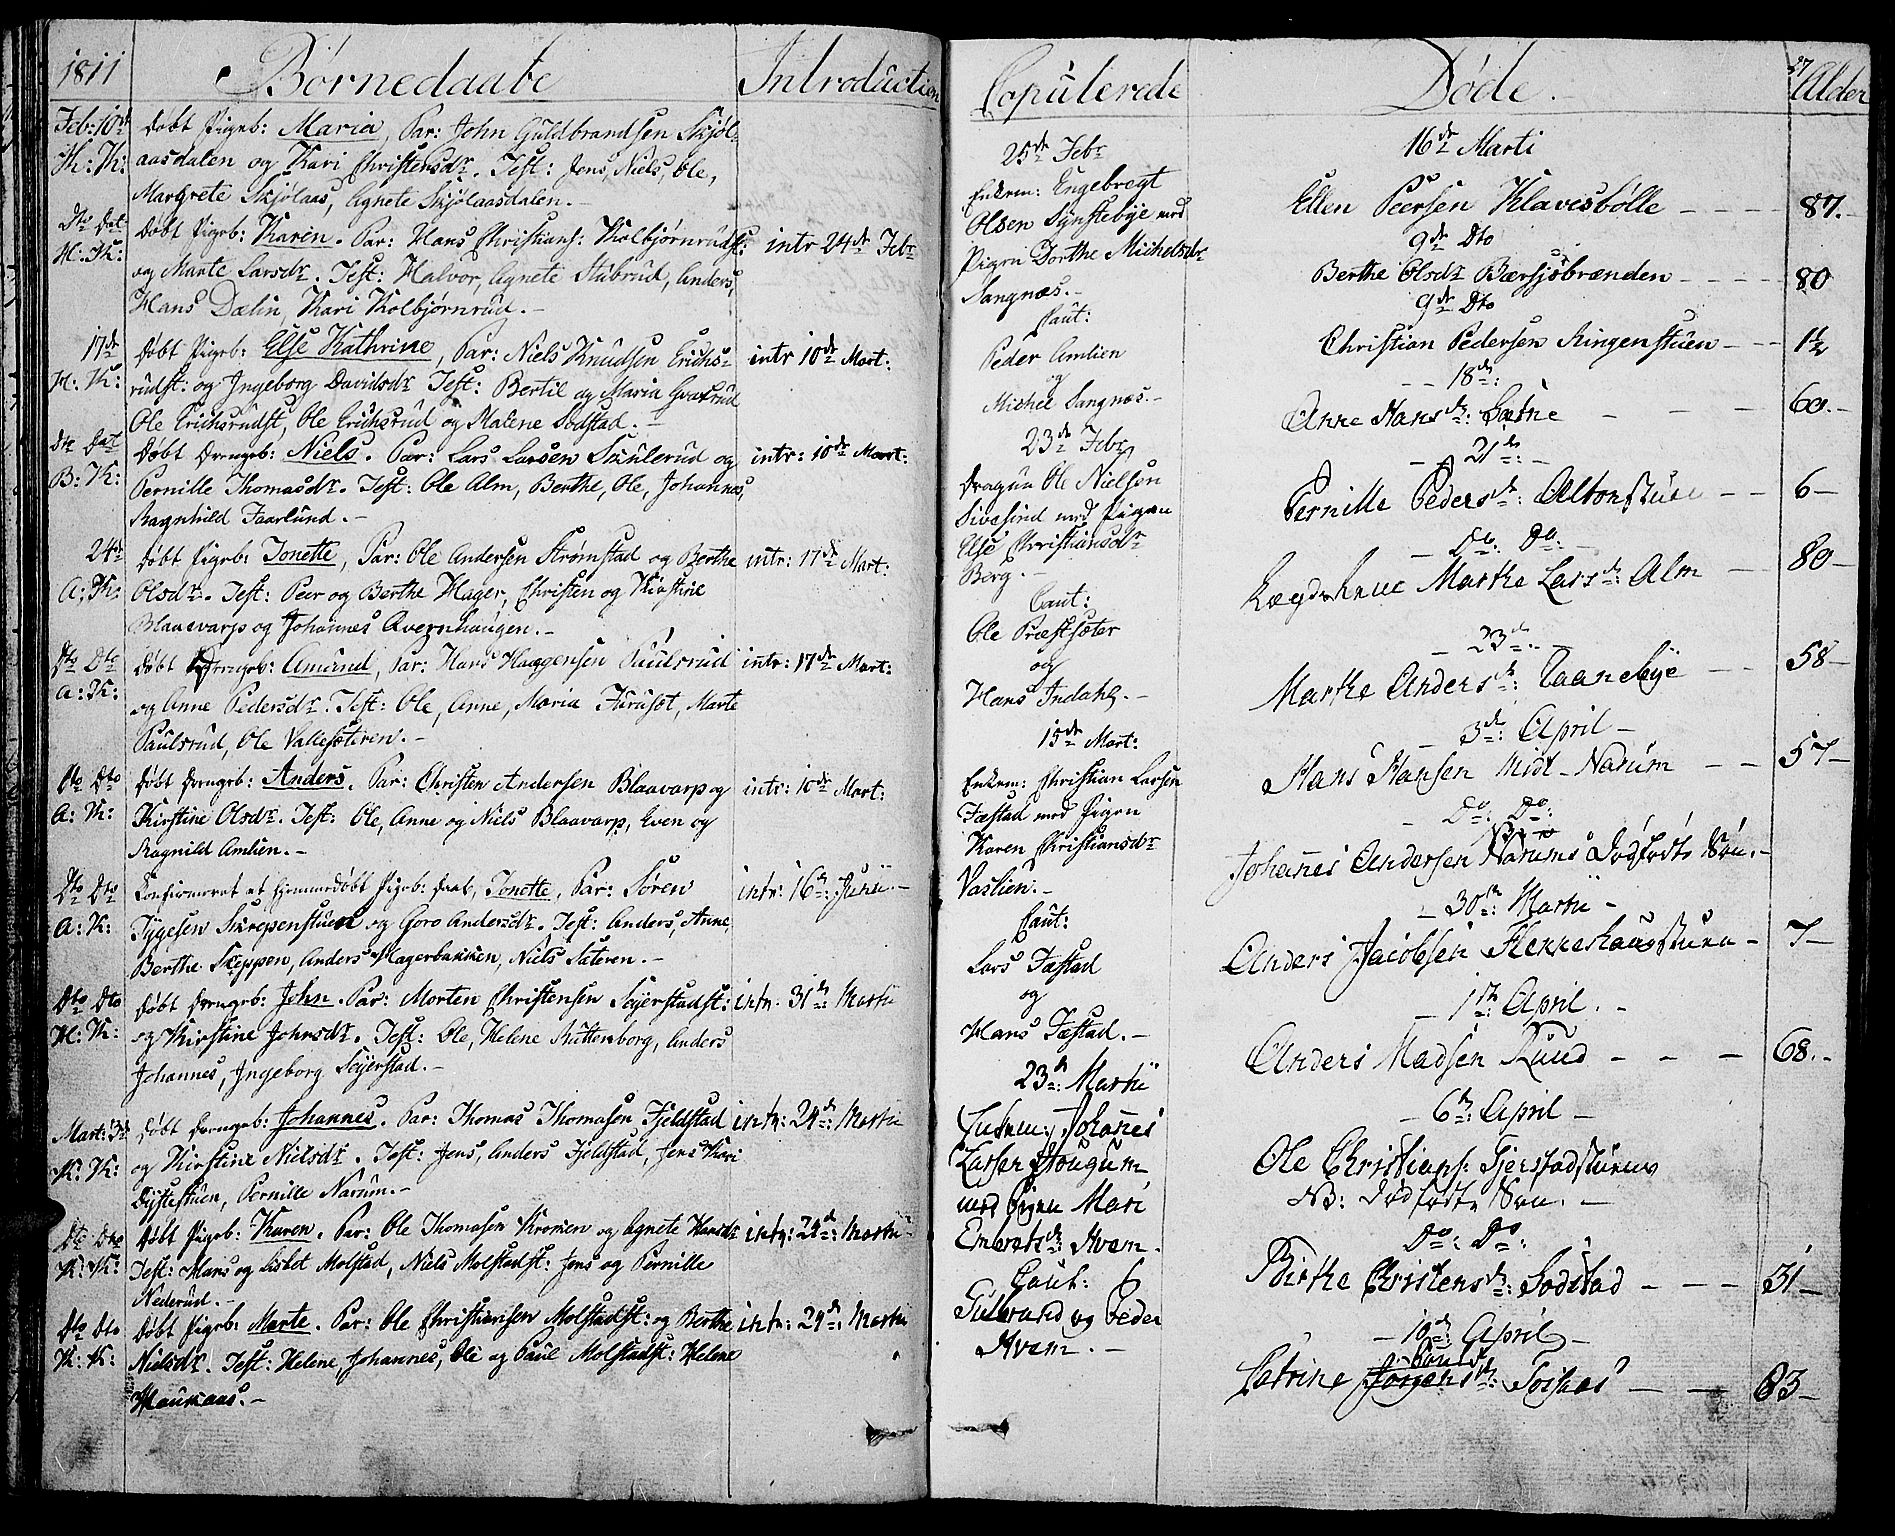 1811
Børnedaabe
Introduction
Feb: 10de
H: K:
døbt Pigeb: Maria, Par: John Guldbrandsen Skjøl-
aasdalen og Kari Christensdr. Test: Jens, Niels, Ole,
Margrete Skjølaas, Agnete Skjølaasdalen.-
Dto Dat
H: K:
døbt Pigeb: Karen. Par: Hans Christians: Kolbjørnrudst: intr 24de Febr
og Marte Larsdr. Test: Halvor, Agnete Stubrud, Anders,
Hans Dælin, Kari Kolbjørnrud.-
17de
H: K:
døbt Pigeb: Else Kathrine, Par: Niels Knudsen Erichs- intr 10de Mart:
rudst: og Ingeborg Davidsdr Test: Bertil og Maria
Ole Erichsrudst, Ole Erichsrud og Malene Sodstad.-
Dto Dat
B: K:
Døbt Drengeb: Niels. Par: Lars Larsen Skulerud og intr: 10de Mart:
Pernille Thomasdr. Test: Ole Alm, Berthe, Ole, Johannes,
Ragnhild Faarlund.-
24de
A: K:
døbt Pigeb: Tonette, Par: Ole Andersen Strømstad og Berthe intr: 17de Mart:
Olsdr. Test: Peer og Berthe Hager, Christen og Kirstine
Blaavarp og Johannes Qvernhaugen.-
Dto Dto
A: K:
døbt Drengeb: Amund, Par: Hans Haagensen Paulsrud intr: 17de Mart:
og Anne Pedersdr. Test: Ole, Anne, Maria Furuset, Marte
Paulsrud, Ole Vallesæteren.-
Dto Dto
A: K:
døbt Drengeb: Anders. Par: Christen Andersen Blaavarp og intr: 10de Mart:
Kirstine Olsdr. Test: Ole, Anne og Niels Blaavarp, Even og
Ragnild Amlien.-
Dto Dto
A: K:
Confirmeret et hjemmedøbt Pigeb: Daab, Tonette, Par: Søren intr: 16de Junii.-
Tygesen Skrepenstuen og Goro Andersdr. Test: Anders, Anne
Berthe Skeppen, Anders Hagerbakken, Niels Sæteren.-
Dto Dto
H: K:
døbt Drengeb: John. Par: Morten Christensen Sejerstadst: intr. 31te Martii
og Kirstine Johnsdr. Test: Ole, Helene Ruttenborg, Anders
Johannes, Ingeborg Sejerstad.-
Mart: 3de
K: K:
døbt Drengeb: Johannes. Par: Thomas Thomasen Fjeldstad intr: 24de Martii
og Kirstine Nielsdr. Test: Jens, Anders Fjeldstad, Jens Kari
Dystestuen, Pernille Narum.-
Dto Dto
K: K:
døbt Pigeb: Karen. Par: Ole Thomasen Kroken og Agnete Hansdr intr: 24de: Martii
Test: Hans og Lisbet Molstad, Niels Molstadst: Jens og Pernille
Nederud.-
Dto Dto
K: K:
Døbt Pigeb: Marte. Par: Ole Christiansen Molstadst: og Berthe intr: 24de: Martii
Nielsdr. Test: Helene, Johannes, Ole og Paul Molstadst: Helene
Haukaas.-
Copulerede
25de Febr
Enkem: Engebregt
Olsen Synstebye med
Pigen Dorthe Michelsdr
Sangnæs.-
Caut:
Peder Amlien
og
Michel Sangnæs.-
23de Febr
Dragun Ole Nielsen
Sivesind med Pigen
Else Christiansdr
Berg.-
Caut:
Ole Præstsæter
og
Hans Indahl.-
15de Mart:
Enkem: Christian Larsen
Fæstad med Pigen
Karen Christiansdr
Vastien.-
Caut:
Lars Fæstad
og
Hans Fæstad.-
23de Martii
Enkem: Johanes
Larsen Hougum
med Pigen Mari
Embretsdr: Hvam.
Caut:
Gulbrand og Peder
Hvam.-
Døde.
27
Alder
16de Marti
Ellen Peersen Klavesbølle - - - 87.-
9de Dto
Berthe Olsdr Bærsjøbrænden - - - 80
9de Dto
Christian Pedersen Ringenstuen - - 1½
- - 18de:
Anne Hansdr: Sætne - - - 60.-
- 21de: -
Pernille Pedersdr: Alfonstuen - - 6-
- Do: Do: -
Lægdskone Marthe Larsdr: Alm - 80-
- 23de: -
Marthe Andersdr: Taanebye - - 58-
- 3de: April -
Hans Hansen Midt-Narum - - 57-
- Do: Do:
Johanes Andersen Narums Dødfødte Søn.-
- 30te: Martii -
Anders Jacobsen Flekkehaugstuen - 7-
- 1te: April. -
Anders Madsen Ruud - - - 68.-
- 6te: April -
Ole Christians: Gjerstadstuens
NB: Dødfødte Søn. -
Do: Do:
Birthe Christensdr: Sodstad - - - 31-
- 10de: April -
Pouls
Catrine Jørgensdr: Soshaes - - 83-